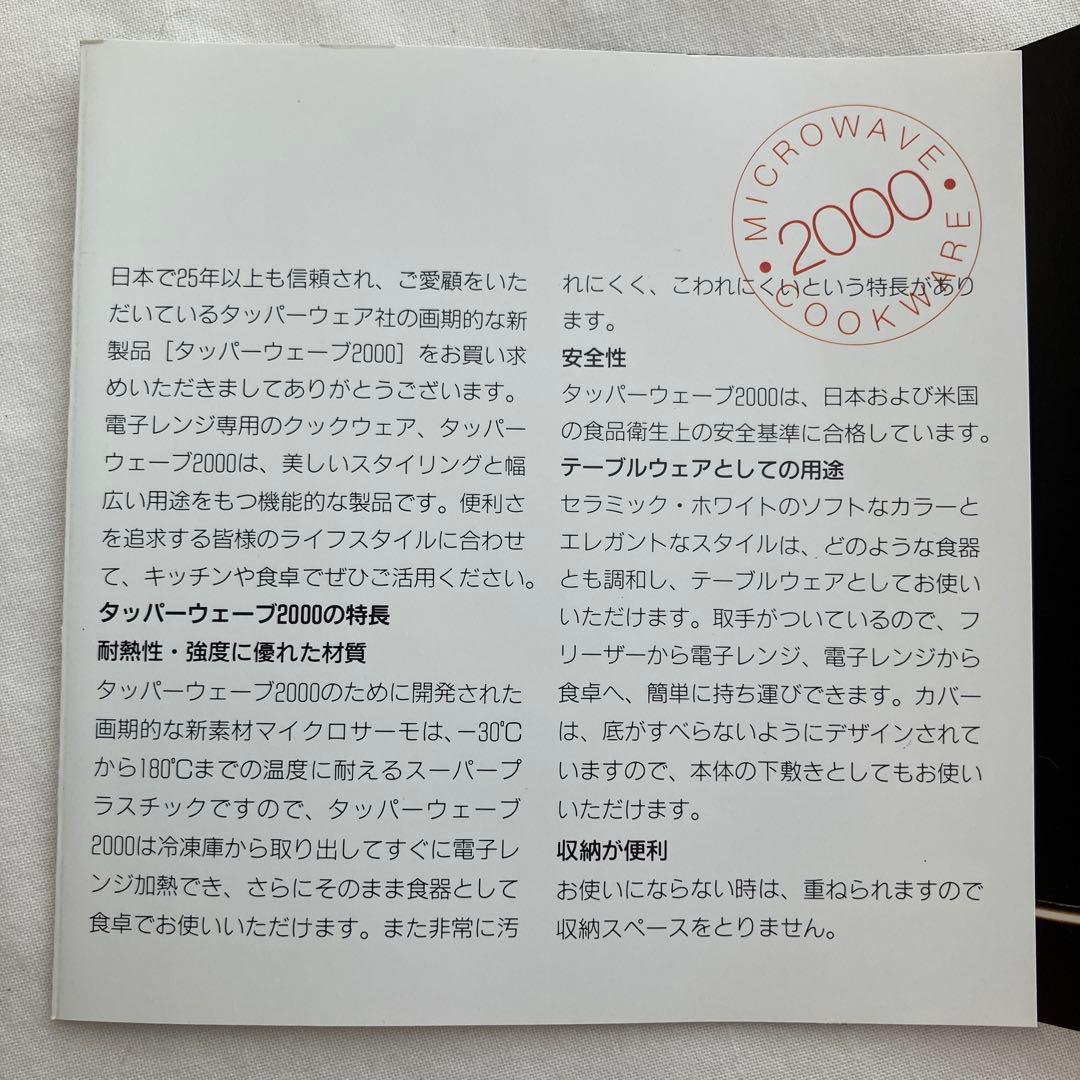 MICROWAVE
2000
COOKWARE
日本で25年以上も信頼され、ご愛顧をいた
だいているタッパーウェア社の画期的な新
製品［タッパーウェーブ2000］をお買い求
めいただきましてありがとうございます。
電子レンジ専用のクックウェア、タッパー
ウェーブ2000は、美しいスタイリングと幅
広い用途をもつ機能的な製品です。便利さ
を追求する皆様のライフスタイルに合わせ
て、キッチンや食卓でぜひご活用ください。
タッパーウェーブ2000の特長
耐熱性・強度に優れた材質
タッパーウェーブ2000のために開発された
画期的な新素材マイクロサーモは、−30℃
から180℃までの温度に耐えるスーパープ
ラスチックですので、タッパーウェーブ
2000は冷凍庫から取り出してすぐに電子レ
ンジ加熱でき、さらにそのまま食器として
食卓でお使いいただけます。また非常に汚
れにくく、こわれにくいという特長があり
ます。
安全性
タッパーウェーブ2000は、日本および米国
の食品衛生上の安全基準に合格しています。
テーブルウェアとしての用途
セラミック・ホワイトのソフトなカラーと
エレガントなスタイルは、どのような食器
とも調和し、テーブルウェアとしてお使い
いただけます。取手がついているので、フ
リーザーから電子レンジ、電子レンジから
食卓へ、簡単に持ち運びできます。カバー
は、底がすべらないようにデザインされて
いますので、本体の下敷きとしてもお使い
いただけます。
収納が便利
お使いにならない時は、重ねられますので
収納スペースをとりません。